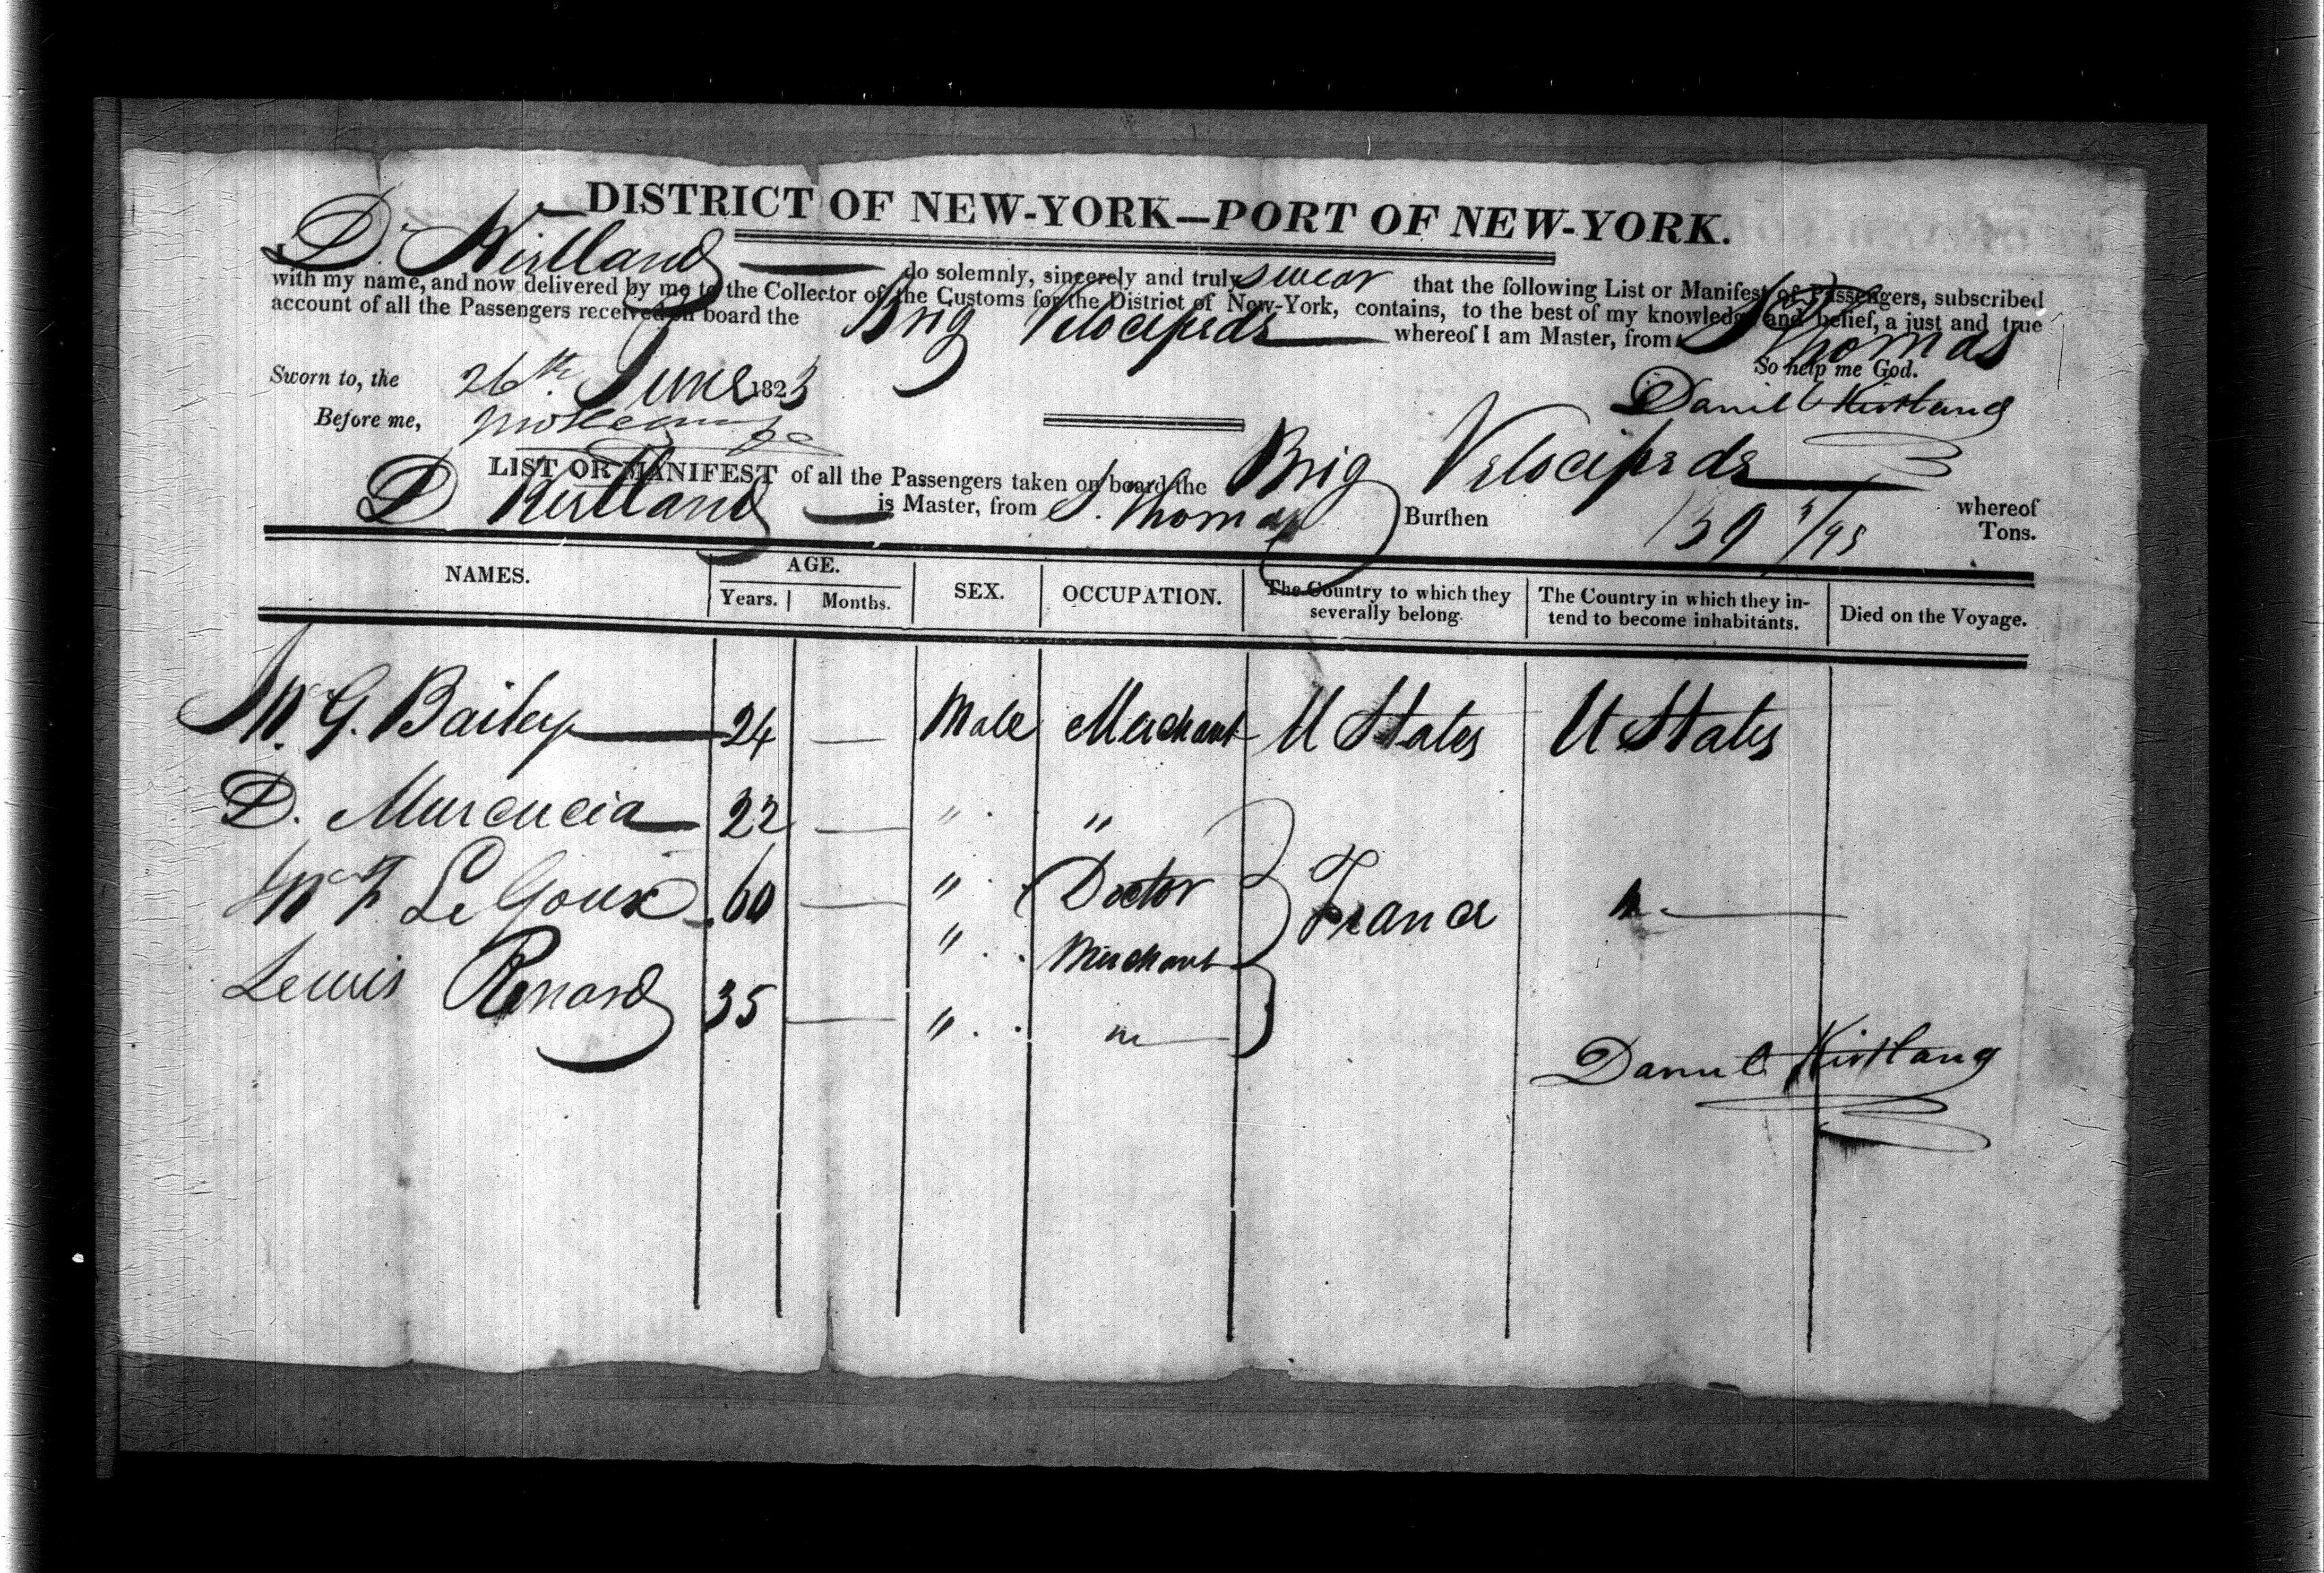 DISTRICT OF NEW-YORK—PORT OF NEW-YORK.
D. Kirtland do solemnly, sincerely and truly swear that the following List or Manifest of Passengers, subscribed
with my name, and now delivered by me to the Collector of the Customs for the District of New-York, contains, to the best of my knowledge and belief, a just and true
account of all the Passengers received on board the Brig Velocipede whereof I am Master, from St Thomas
So help me God.
Sworn to, the 26th June 1823
Daniel Kirtland
Before me,
LIST OR MANIFEST of all the Passengers taken on board the Brig Velocipede whereof
D Kirtland is Master, from St. Thomas Burthen 139 /95 Tons.
NAMES. AGE. SEX. OCCUPATION. The Country to which they severally belong. The Country in which they intend to become inhabitants. Died on the Voyage.
Years. Months.
G. Bailey 24 — Male Merchant U States U States
D. Murcucia 22 — " "
F. Le Goux 60 — " Doctor France
Lewis Renard 35 — " Merchant
"
Daniel Kirtland